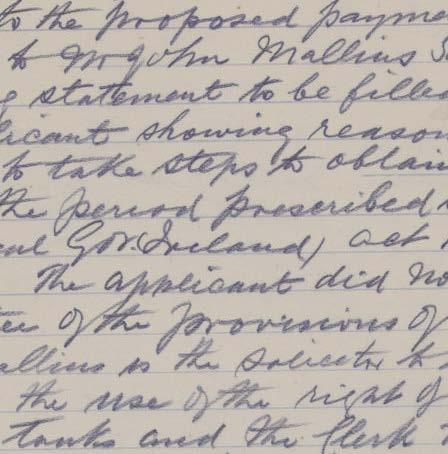 to the proposed payme
to Mr John Mallins S
g statement to be filled
licant showing reason
to take steps to obtain
the period prescribed
cal Gov. (Ireland) act
The applicant did no
tee of the provisions of
allins is the solicitor to
the use of the right of
tanks and the Clerk